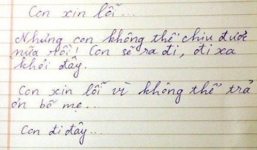 Con xin lỗi...
Nhưng con không thể chịu được
nữa rồi! Con sẽ ra đi, đi xa
khỏi đây.
Con xin lỗi vì không thể trả
ơn bố mẹ...
Con đi đây...